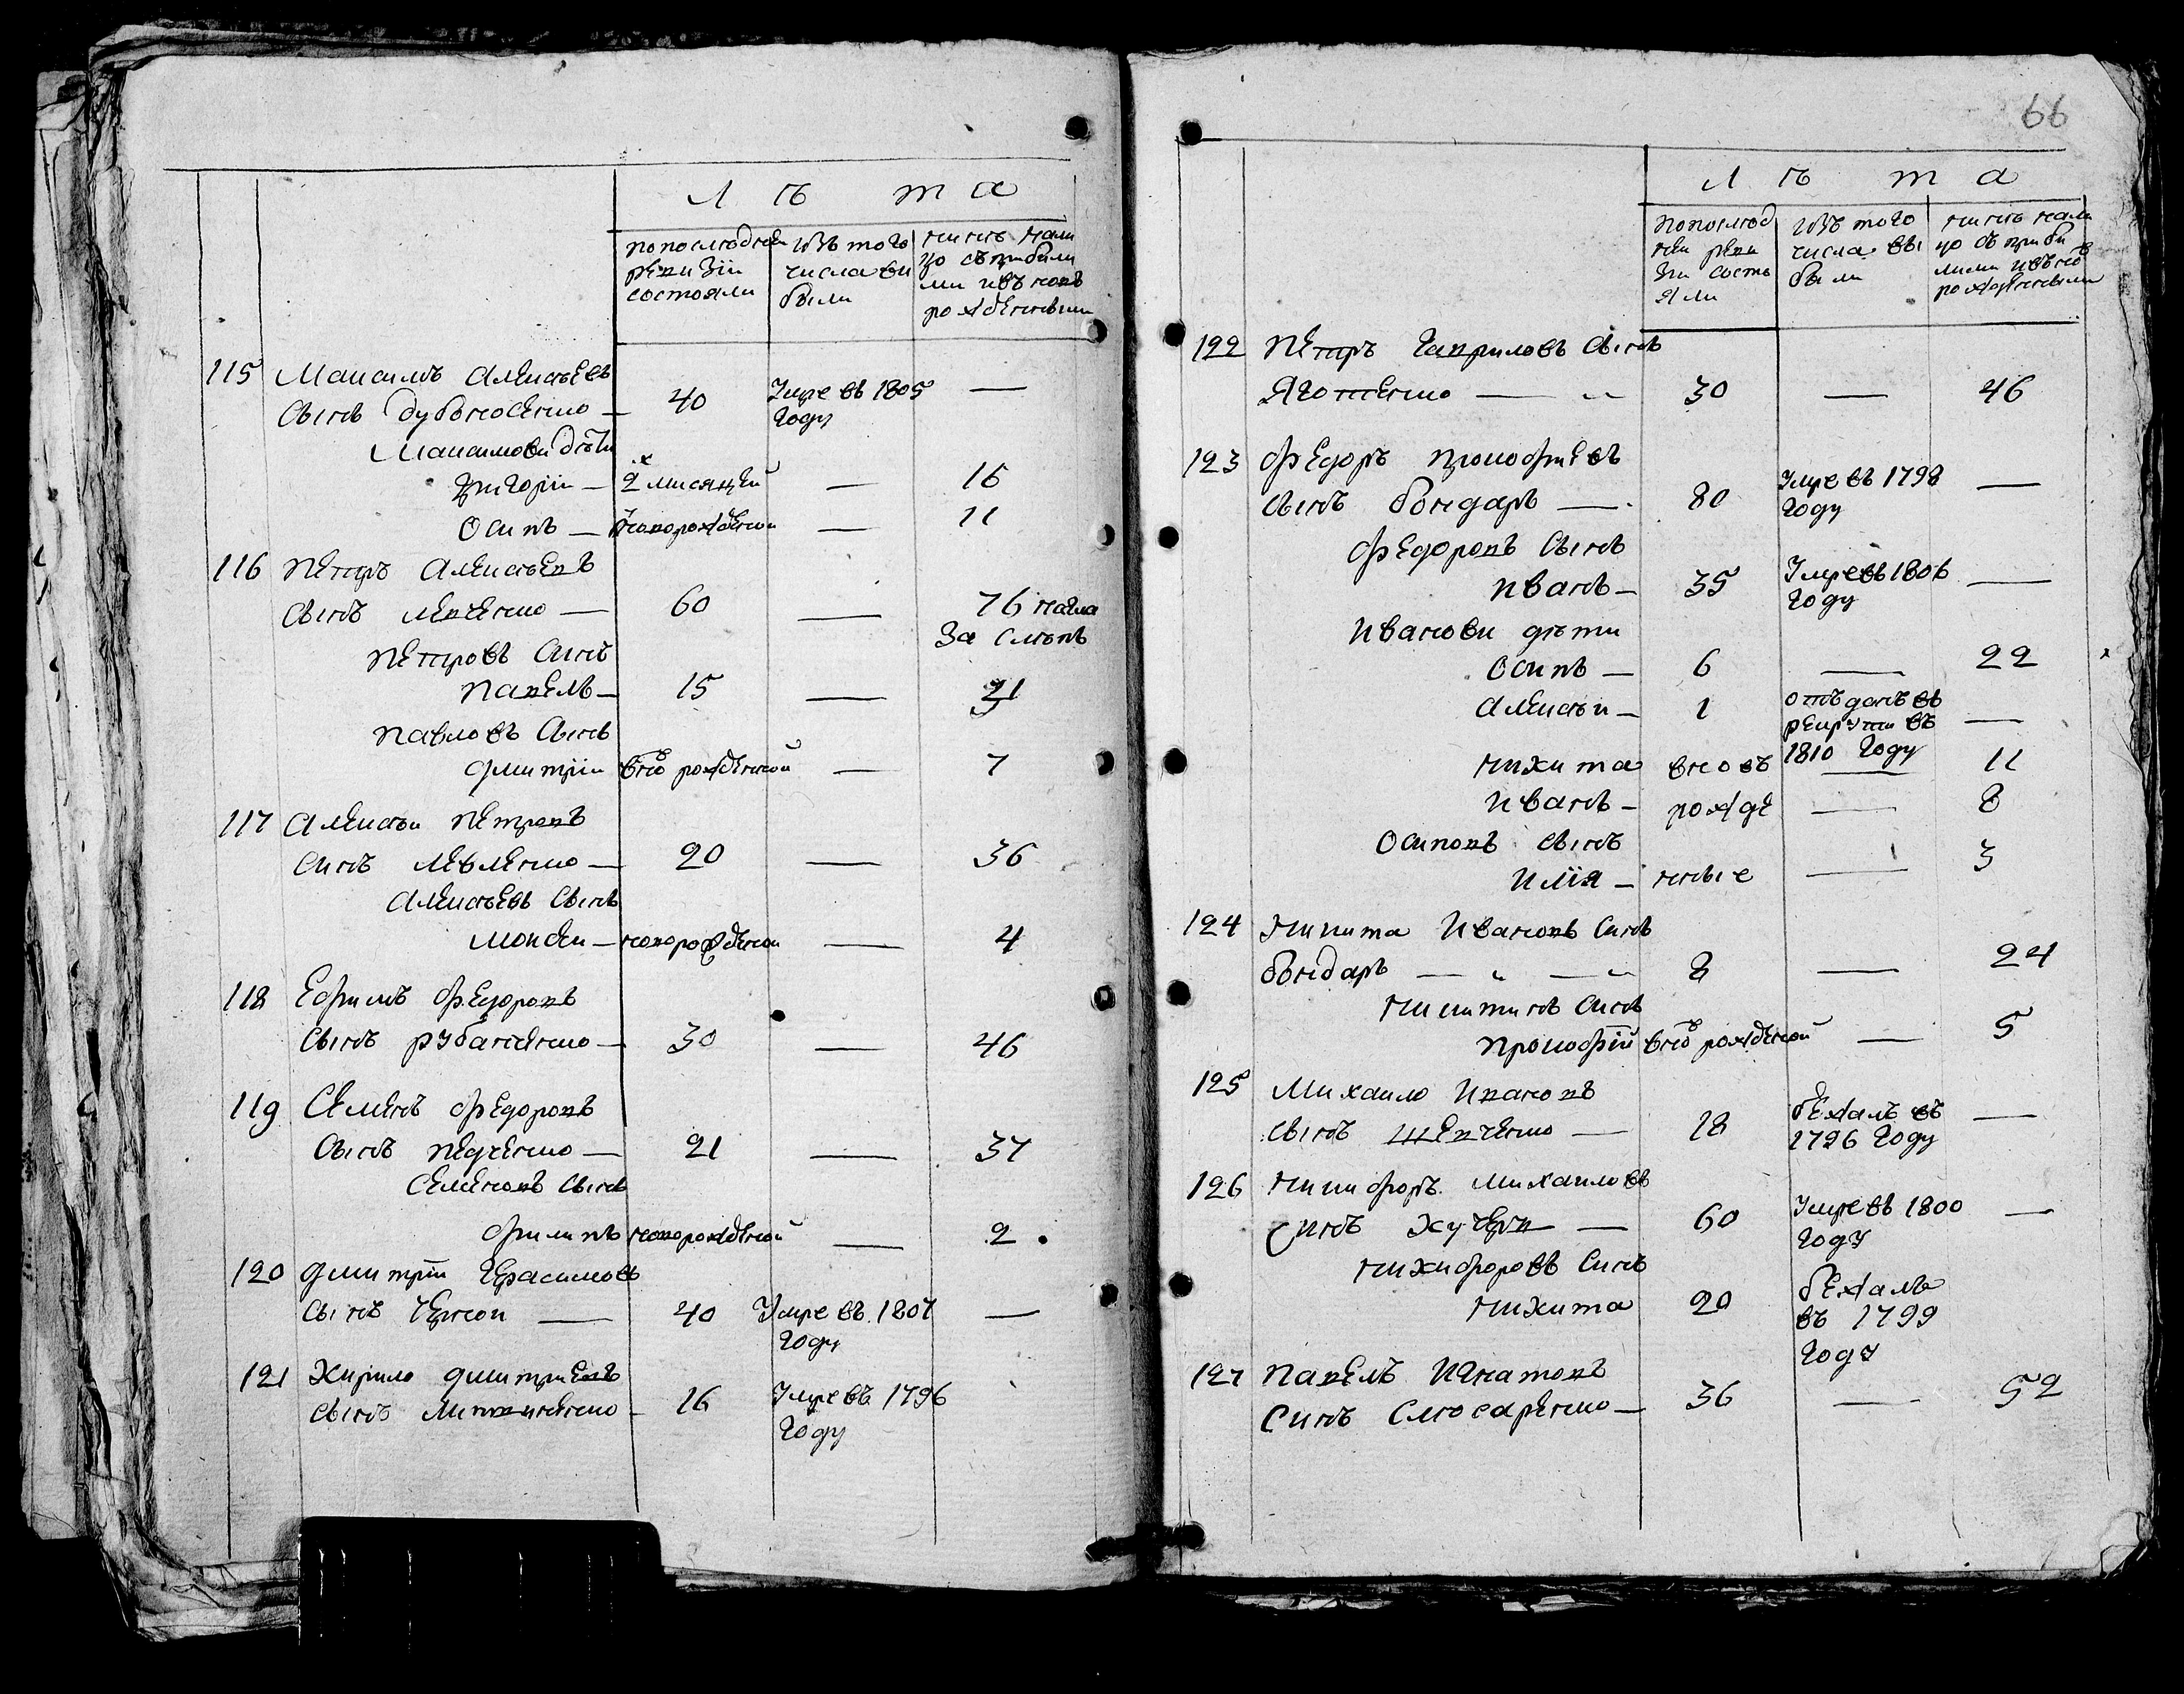 Л ѣ т а
попоследней ревизіи состояли
изъ того числа выбыли
нинѣ налицо съ прибилими и въ новь рожденными
115 Максимъ Алексѣевъ
Сынъ Дубовченко — 40 Умре въ 1805 году —
Максимови дѣти
Григорій — 2х мисяцей — 16
Осипъ — новорожденой — 11
116 Петръ Алексѣевъ
Сынъ Левченко — 60 — 76
Петровъ Синъ
Павелъ — 15 — 31
Павловъ Сынъ
Дмитрій вновь рожденной — 7
117 Алексѣи Петровъ
Синъ Левченко — 20 — 36
Алексѣевъ Сынъ
Моисеи — новорожденои — 4
118 Ефимъ Федоровъ
Сынъ Рубаненко — 30 — 46
119 Семенъ Федоровъ
Сынъ Педченко — 21 — 37
Семеновъ Сынъ
Филипъ новорожденой — 2
120 Дмитрій Герасимовъ
Сынъ Чернои — 40 Умре въ 1807 году —
121 Кирило Дмитриевъ
Сынъ — 16 Умре въ 1796 году
66
Л ѣ т а
попослед ней реви зіи состо яли
изъ того числа вы были
нинѣ нали цо съ приби лими и въ новь рожденными
122 Петръ Гавриловъ Сынъ
Яготченко — 30 — 46
123 Федоръ Прокофиевъ
Сынъ Бондаръ — 80 Умре въ 1798 году —
Федоровъ Сынъ
Иванъ — 35 Умре въ 1806 году —
Иванови дѣти
Осипъ — 6 — 22
Алексѣи — 1 отъданъ въ рекрути въ 1810 году —
Никита вновь — 11
Иванъ — рожде — 8
Осиповъ Сынъ
Илія — нные — 3
124 Никита Ивановъ Синъ
Бондаръ — „ — „ 8 — 24
Никитинъ Синъ
Прокофій вновь рожденой — 5
125 Михаило Ивановъ
Сынъ Шевченко — 18 бежалъ въ 1796 году —
126 Никифоръ Михаиловъ
Синъ Кучеръ — 60 Умре въ 1800 году —
Никифоровъ Синъ
Никита 20 бежалъ въ 1799 году
127 Павелъ Игнатовъ
Синъ Слюсаренко — 36 — 52